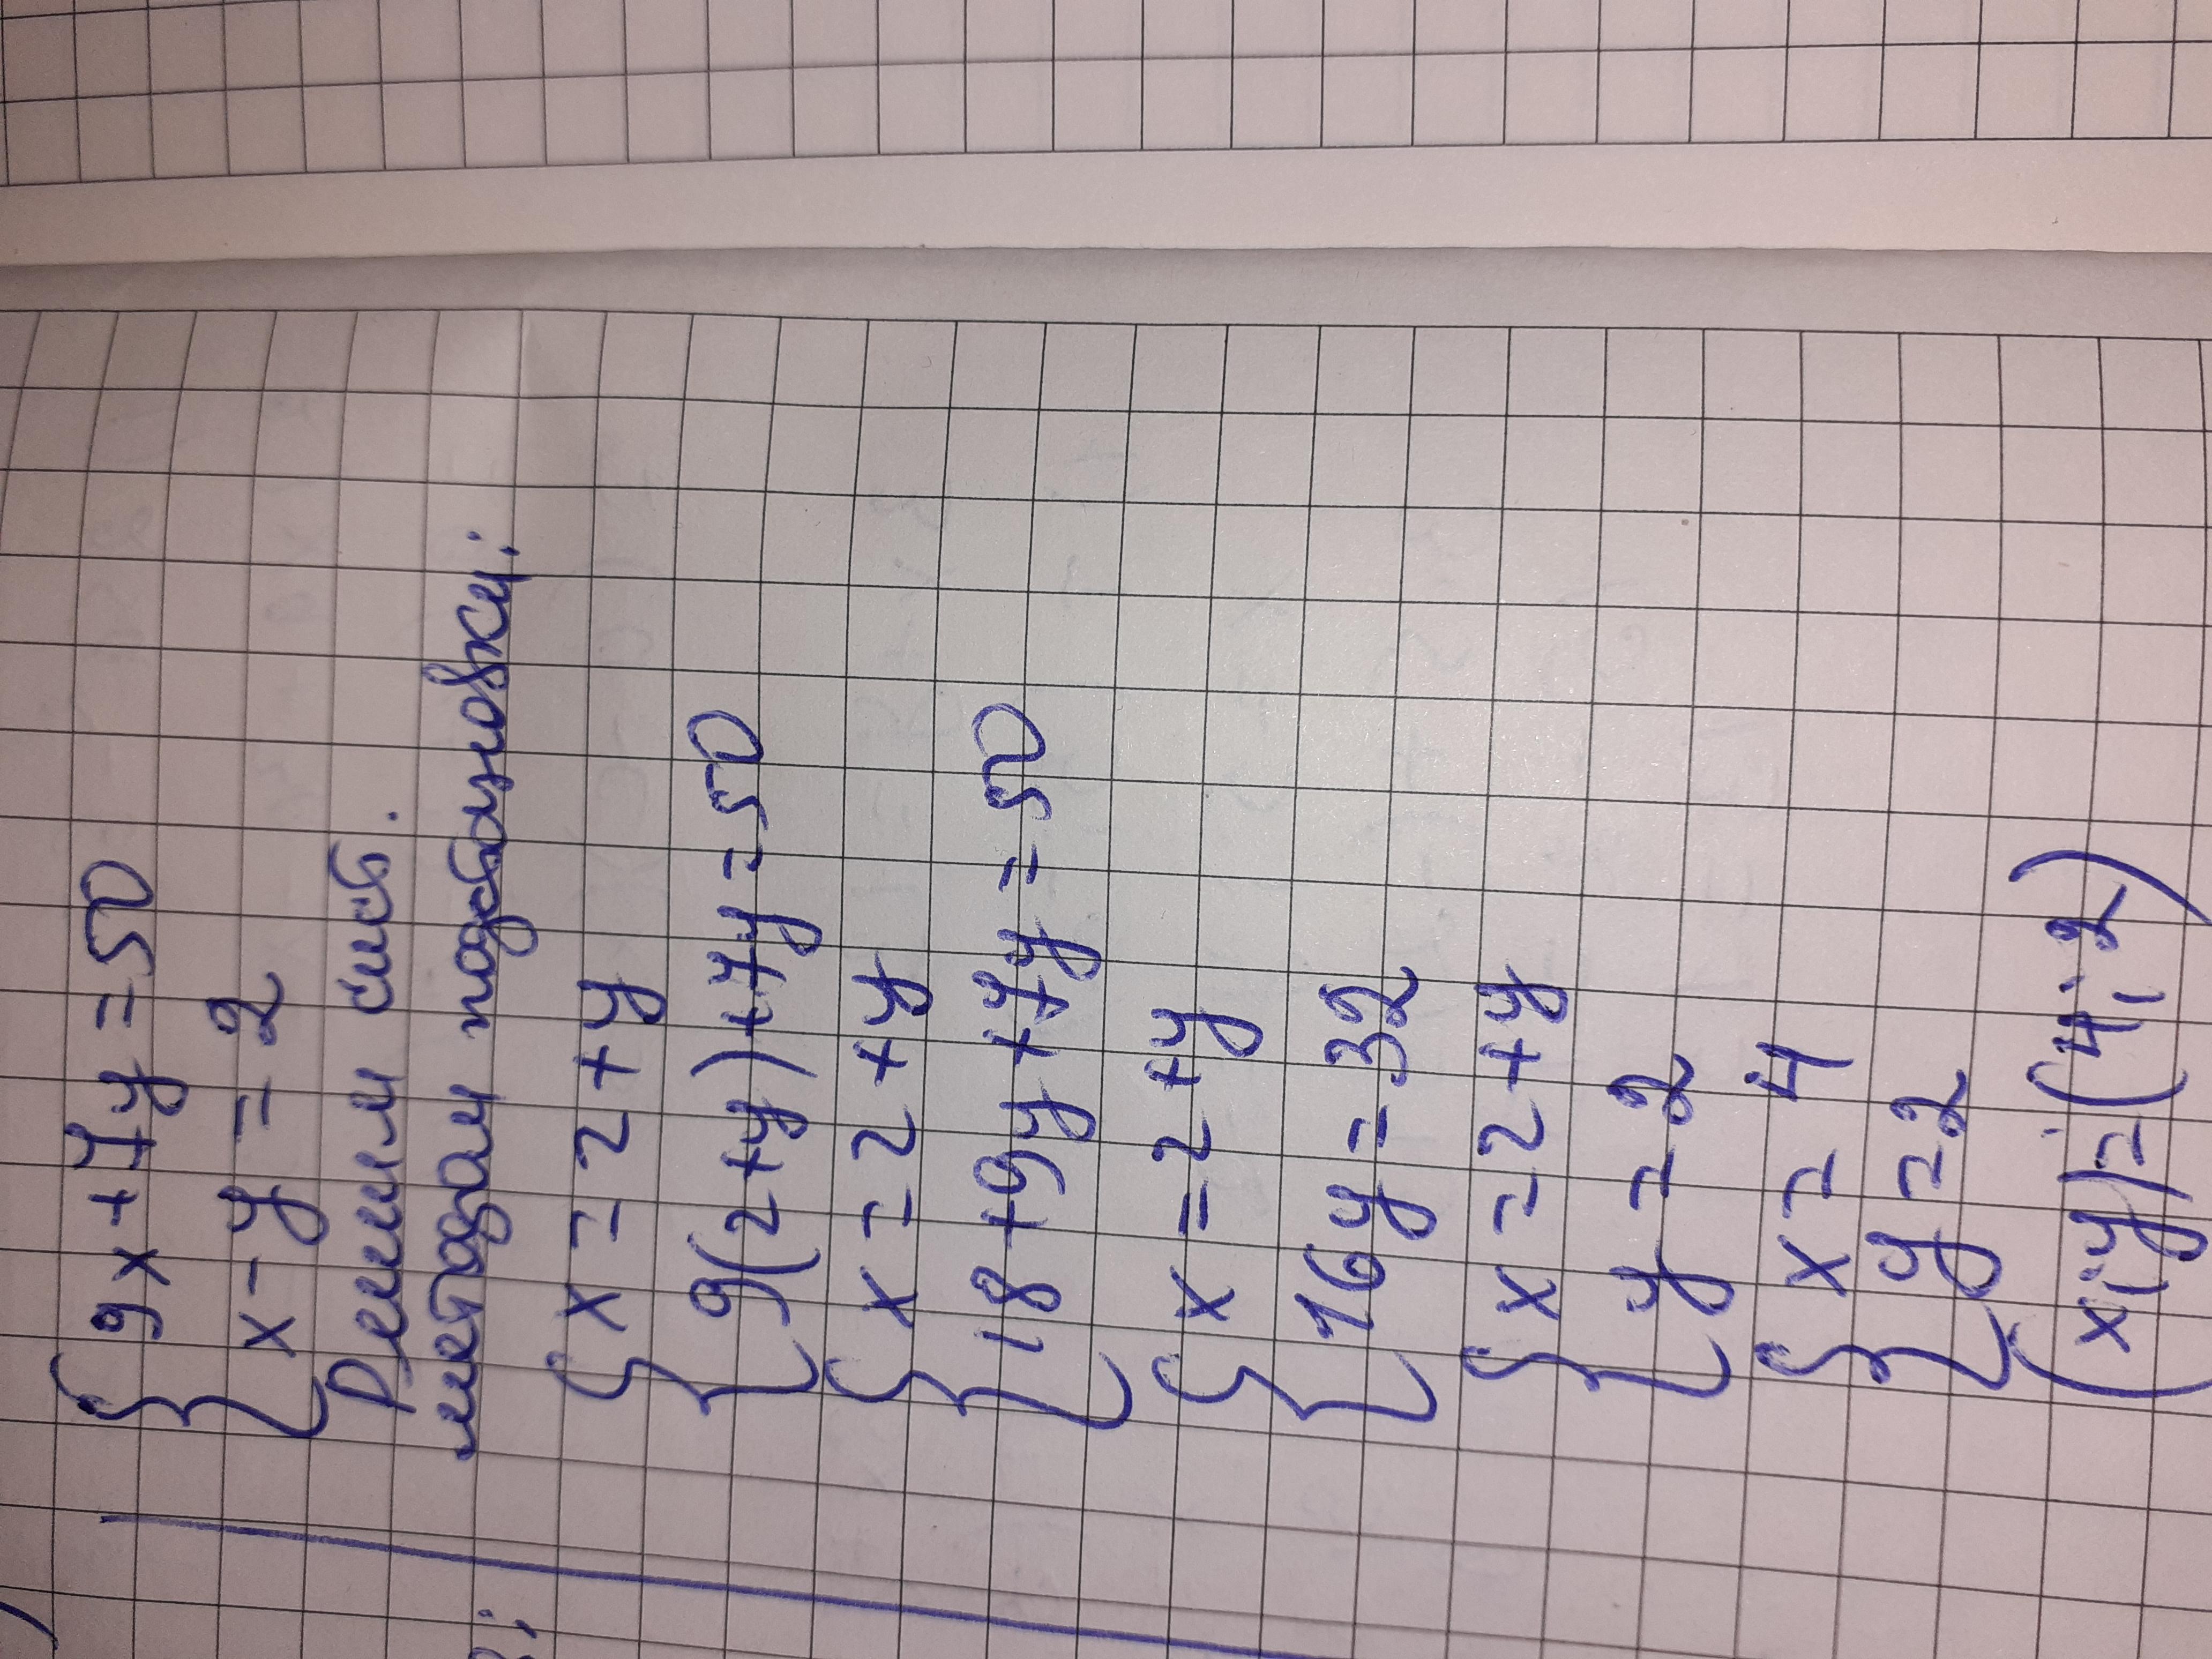 { 9x+7y=50
x-y=2
Решим сист.
методам подстановки:
{ x=2+y
9(2+y)+7y=50
{ x=2+y
18+9y+7y=50
{ x=2+y
16y=32
{ x=2+y
y=2
{ x=4
y=2
(x;y)=(4;2)